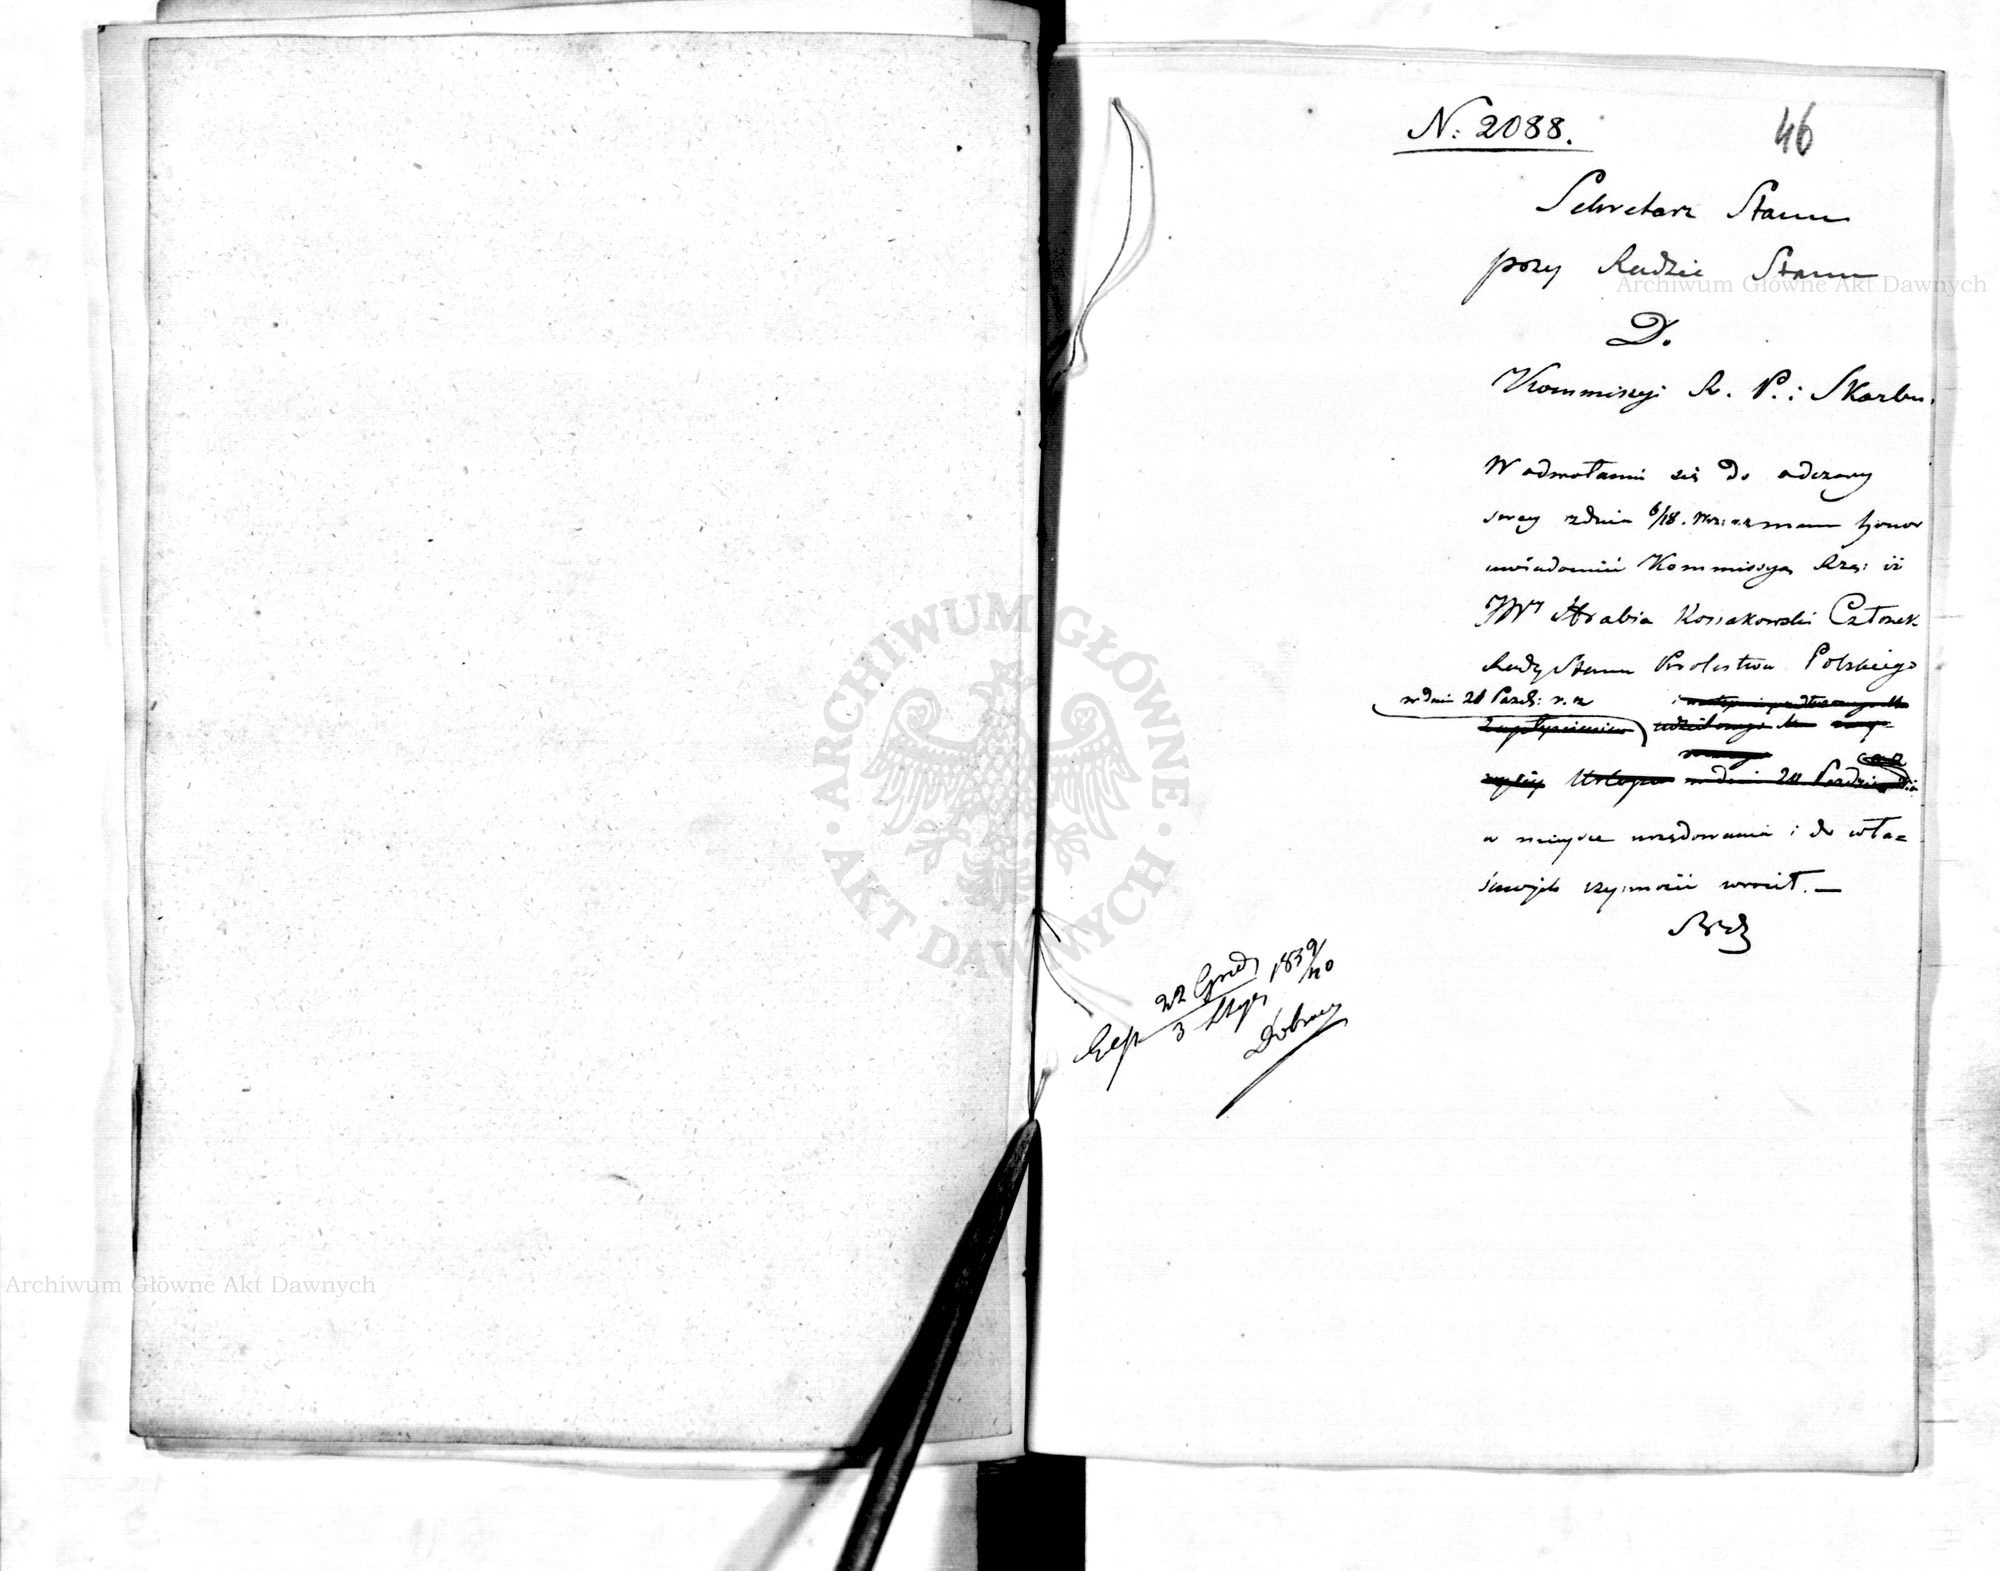 N: 2088.
46
Sekretarz Stanu
przy Radzie Stanu
D.
Kommissyi R. P. i Skarbu.
W odwołaniu się do odezwy
swey z dnia 6/18. mam honor
uwiadomić Kommissyą Rzą: iż
JW Hrabia Kossakowski Członek
Rady Stanu Królestwa Polskiego
w dniu 20 Paźdz: r. z
Urlopu w dniu 20
w mieysce urzędowania i do wła=
ściwych czynności wrócił. —
22 Grud 1839/40
Exp 3 Stycz
Archiwum Główne Akt Dawnych
Archiwum Główne Akt Dawnych
ARCHIWUM GŁÓWNE
· AKT DAWNYCH ·